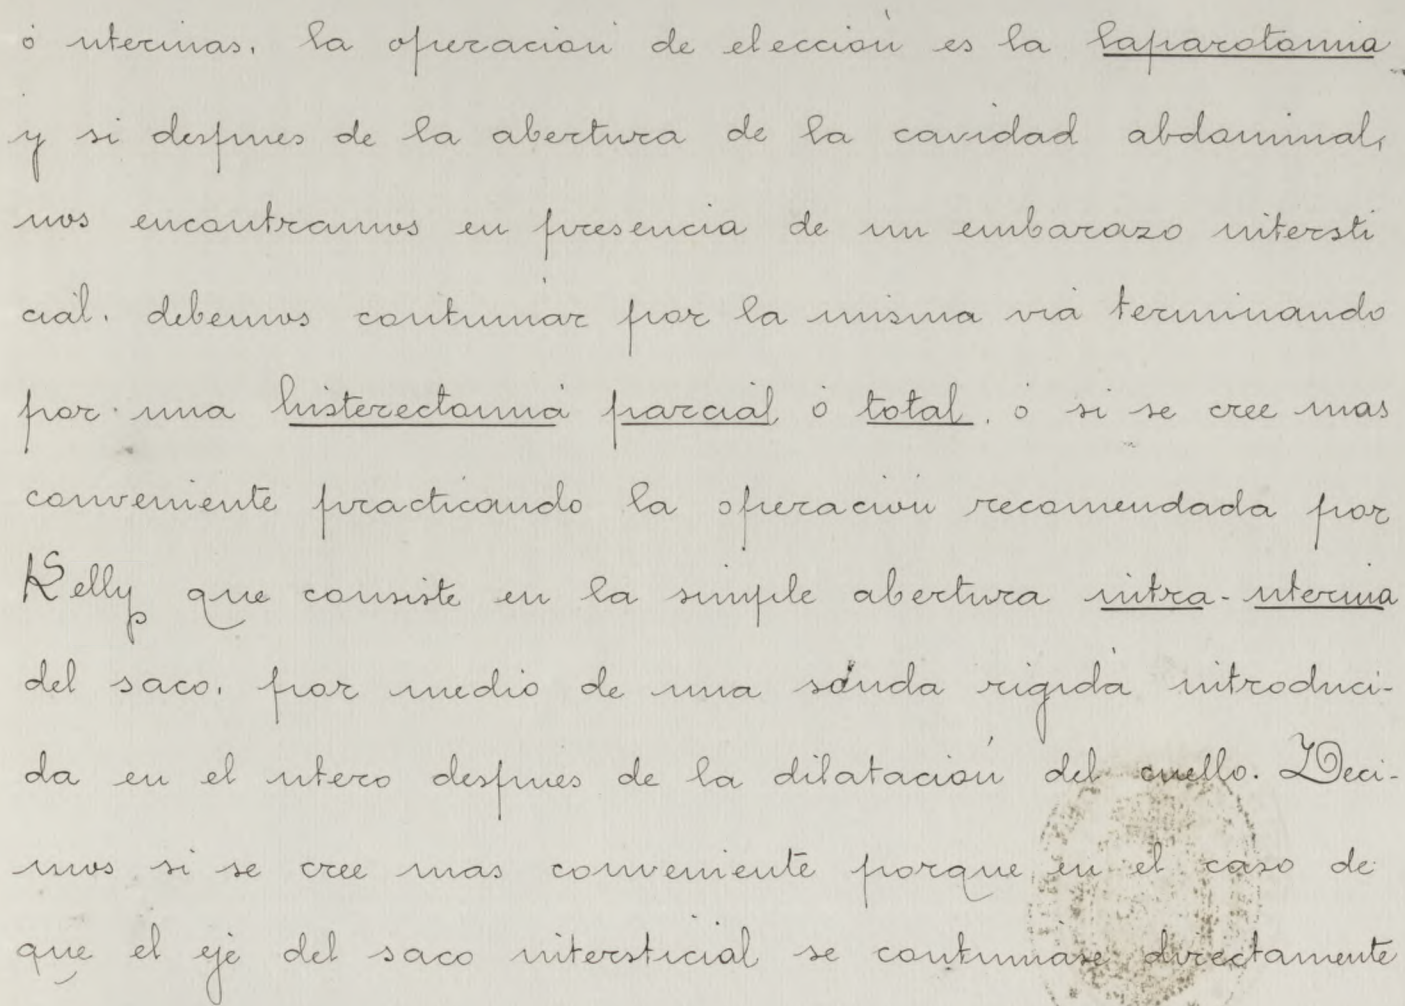 ó uterinas, la operación de elección es la laparotomia
y si despues de la abertura de la cavidad abdominal,
nos encontramos en presencia de un embarazo intersti
cial, debemos continuar por la misma via terminando
por una histerectomia parcial ó total, ó si se cree mas
conveniente practicando la operación recomendada por
Kelly que consiste en la simple abertura intra-uterina
del saco, por medio de una sonda rigida introduci-
da en el utero despues de la dilatación del cuello. Deci-
mos si se cree mas conveniente porque en el caso de
que el eje del saco intersticial se continuase directamente